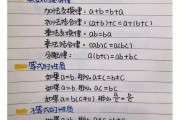 加法交换律：a+b=b+a
加法结合律：(a+b)+c=a+(b+c)
乘法交换律：ab=ba
乘法结合律：(ab)c=a(bc)
分配律：
等式的性质
如果a=b 那么 a±c=b±c
如果a=b 那么 ac=bc
如果a=b(c≠0) 那么 a/c=b/c
不等式的性质